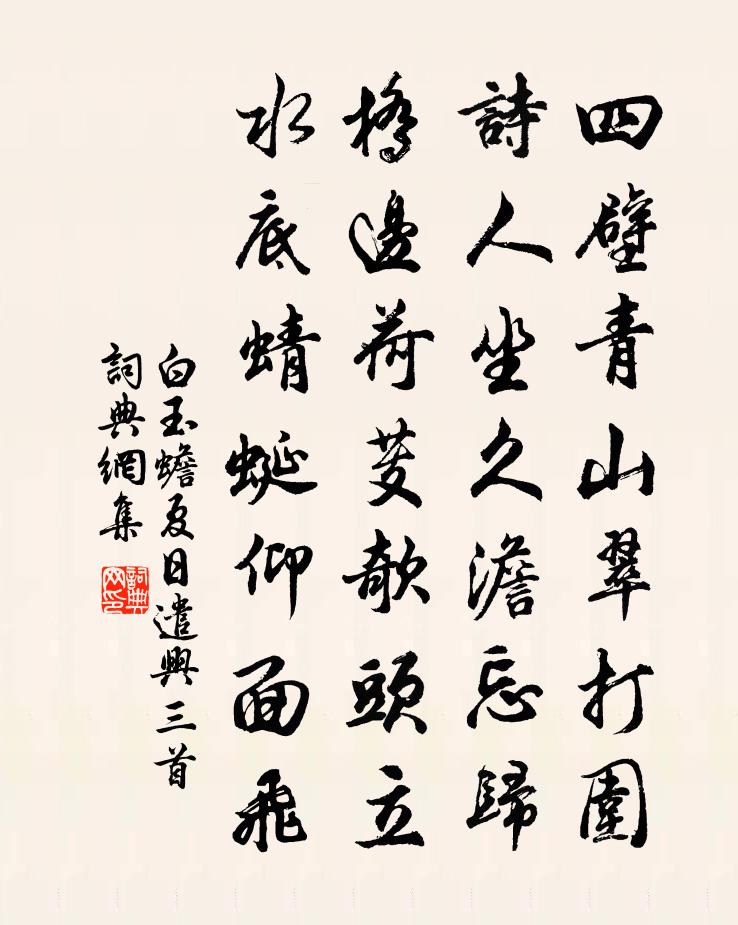 四壁青山翠打圍
詩人坐久澹忘歸
橋邊荷芰欹頭立
水底蜻蜓仰面飛
白玉蟾夏日遣興三首
詞典網集
詞典網印